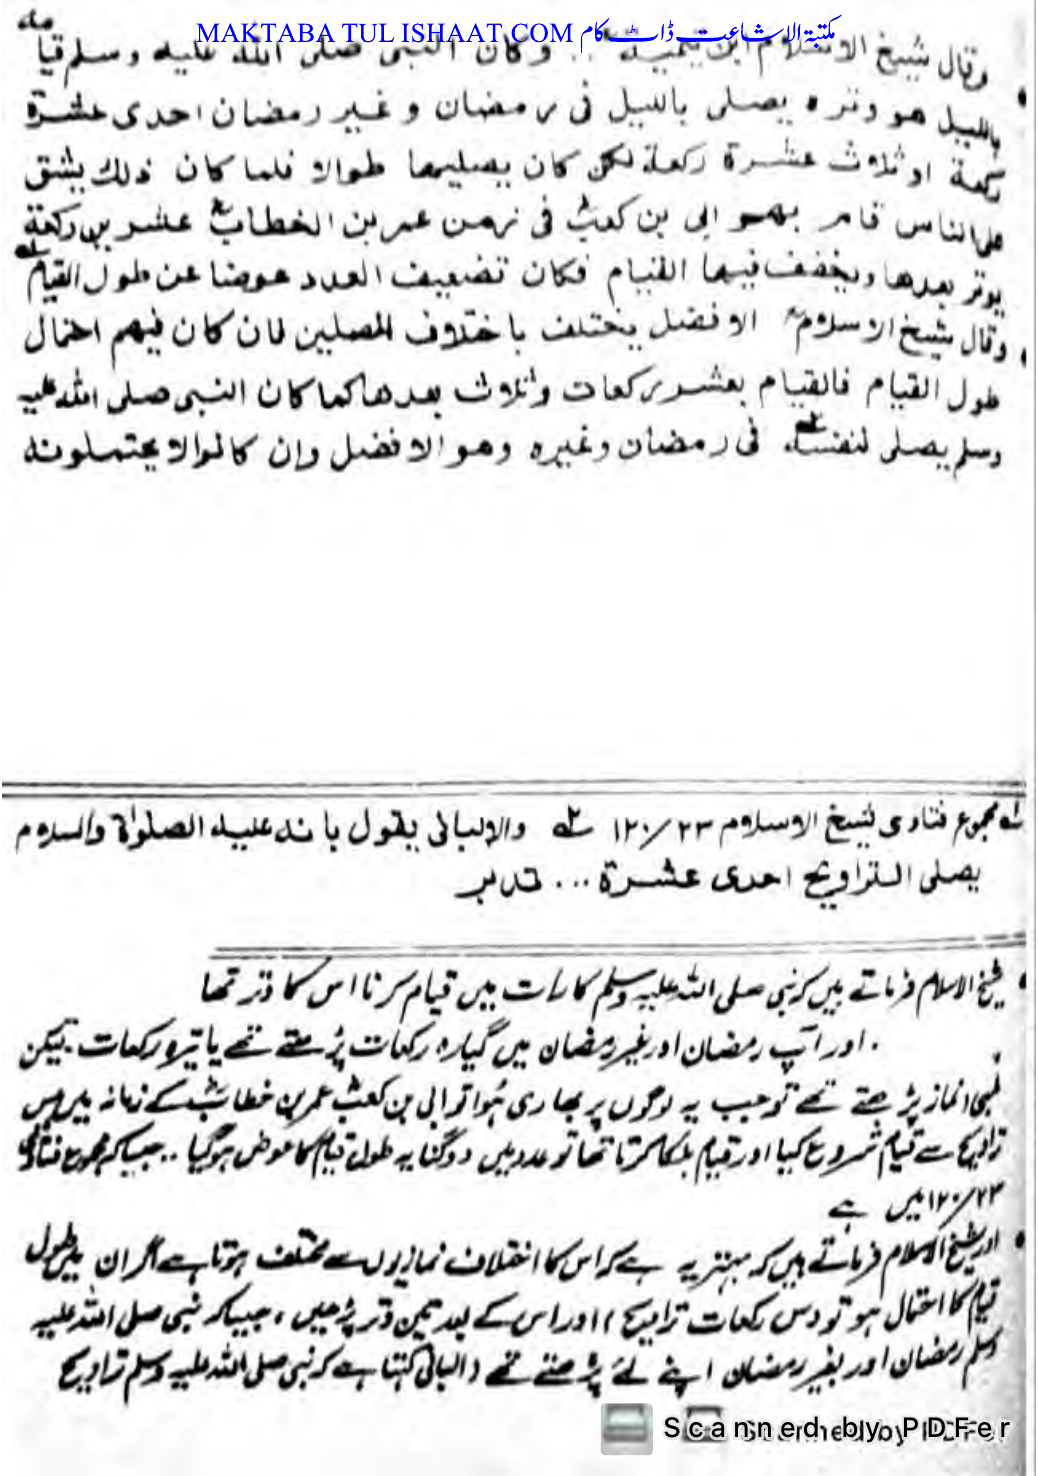 MAKTABA TUL ISHAAT.COM مکتبۃ الاشاعت ڈاٹ کام
وقال شيخ الاسلام ابن تيمية .. وكان النبى صلى الله عليه وسلم قيامه
بالليل هو وتره يصلى بالليل فى رمضان وغير رمضان احدى عشرة
ركعة او ثلاث عشرة ركعة لكن كان يصليها طوالا فلما كان ذلك يشق
على الناس قام بهم ابى بن كعب فى زمن عمر بن الخطاب عشرين ركعة
يوتر بعدها ويخفف فيها القيام فكان تضعيف العدد عوضا عن طول القيام
وقال شيخ الاسلام الافضل يختلف باختلاف المصلين فان كان فيهم احتمال
طول القيام فالقيام بعشر ركعات وثلاث بعدها كما كان النبى صلى الله عليه
وسلم يصلى لنفسه فى رمضان وغيره وهو الافضل وان كانوا لا يحتملونه
مجموع فتاوى شيخ الاسلام ٢٣/١٢٠ والالبانى يقول بانه عليه الصلواة والسلام
يصلى التراويح احدى عشرة ... تدبر
شیخ الاسلام فرماتے ہیں کہ نبی صلی اللہ علیہ وسلم کا رات میں قیام کرنا اس کا وتر تھا
. اور آپ رمضان اور غیر رمضان میں گیارہ رکعات پڑھتے تھے یا تیرہ رکعات ۔ لیکن
لمبی نماز پڑھتے تھے تو جب یہ لوگوں پر بھاری ہوا تو ابی بن کعب عمر بن خطاب کے زمانہ میں بیس
تراویح سے قیام شروع کیا اور قیام ہلکا کرتا تھا تو عدد میں دوگنا یہ طول قیام کا عوض ہوگیا .. جیسا کہ مجموع فتاوی
١٢٠/٢٣ میں ہے
اور شیخ الاسلام فرماتے ہیں کہ بہتر یہ ہے کہ اس کا اختلاف نمازیوں سے مختلف ہوتا ہے اگر ان میں طول
قیام کا احتمال ہو تو دس رکعات تراویح اور اس کے بعد تین وتر پڑھیں ، جیسا کہ نبی صلی اللہ علیہ
وسلم رمضان اور بغیر رمضان اپنے لئے پڑھتے تھے (البانی کہتا ہے کہ نبی صلی اللہ علیہ وسلم تراویح
Scanned by PDFer